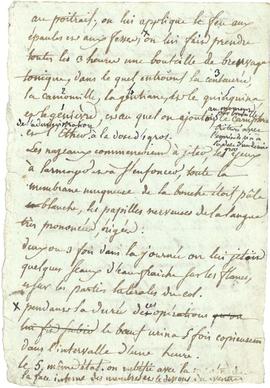 au poitrail; on lui applique le feu aux
épaules et aux fesses, on lui fait prendre
toutes les 3 heures une bouteille de breuvage
tonique, dans lequel entroient la centaurée
la camomille, la gentiane, et le quinquina
et le genièvre, et au quel on ajoutoit
de l'administration
et l'Ether à la dose d'1 gros.
Les nazeaux commencoient à jetter, les yeux
à larmoyer et à s'enfoncer, toute la
membrane muqueuse de la bouche étoit pâle
et blanche, les papilles nerveuses de la langue
très prononcées érigées.
deux ou 3 fois dans la journée on lui jetoit
quelques seaux d'eau fraiche sur les flancs,
et sur les parties latérales du col.
x pendant la durée de ces opérations
le bœuf urina 5 fois copieusement
dans l'intervalle d'une heure.
le 5, même état, on
la face interne des